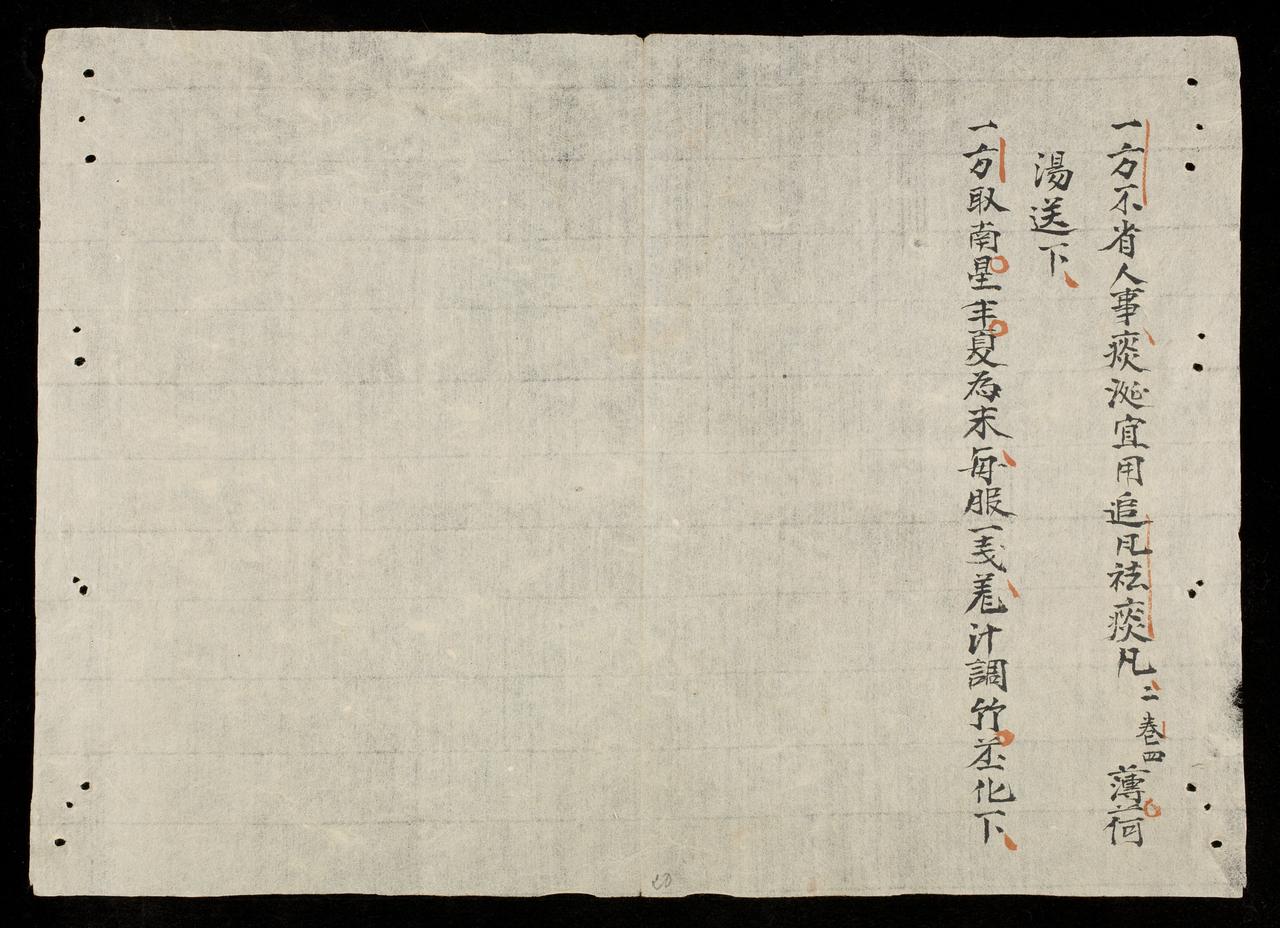 一方不省人事痰涎宜用追凡祛痰凡二卷四薄荷
湯送下
一方取南星半夏为末每服一戔羌汁調竹並化下
20